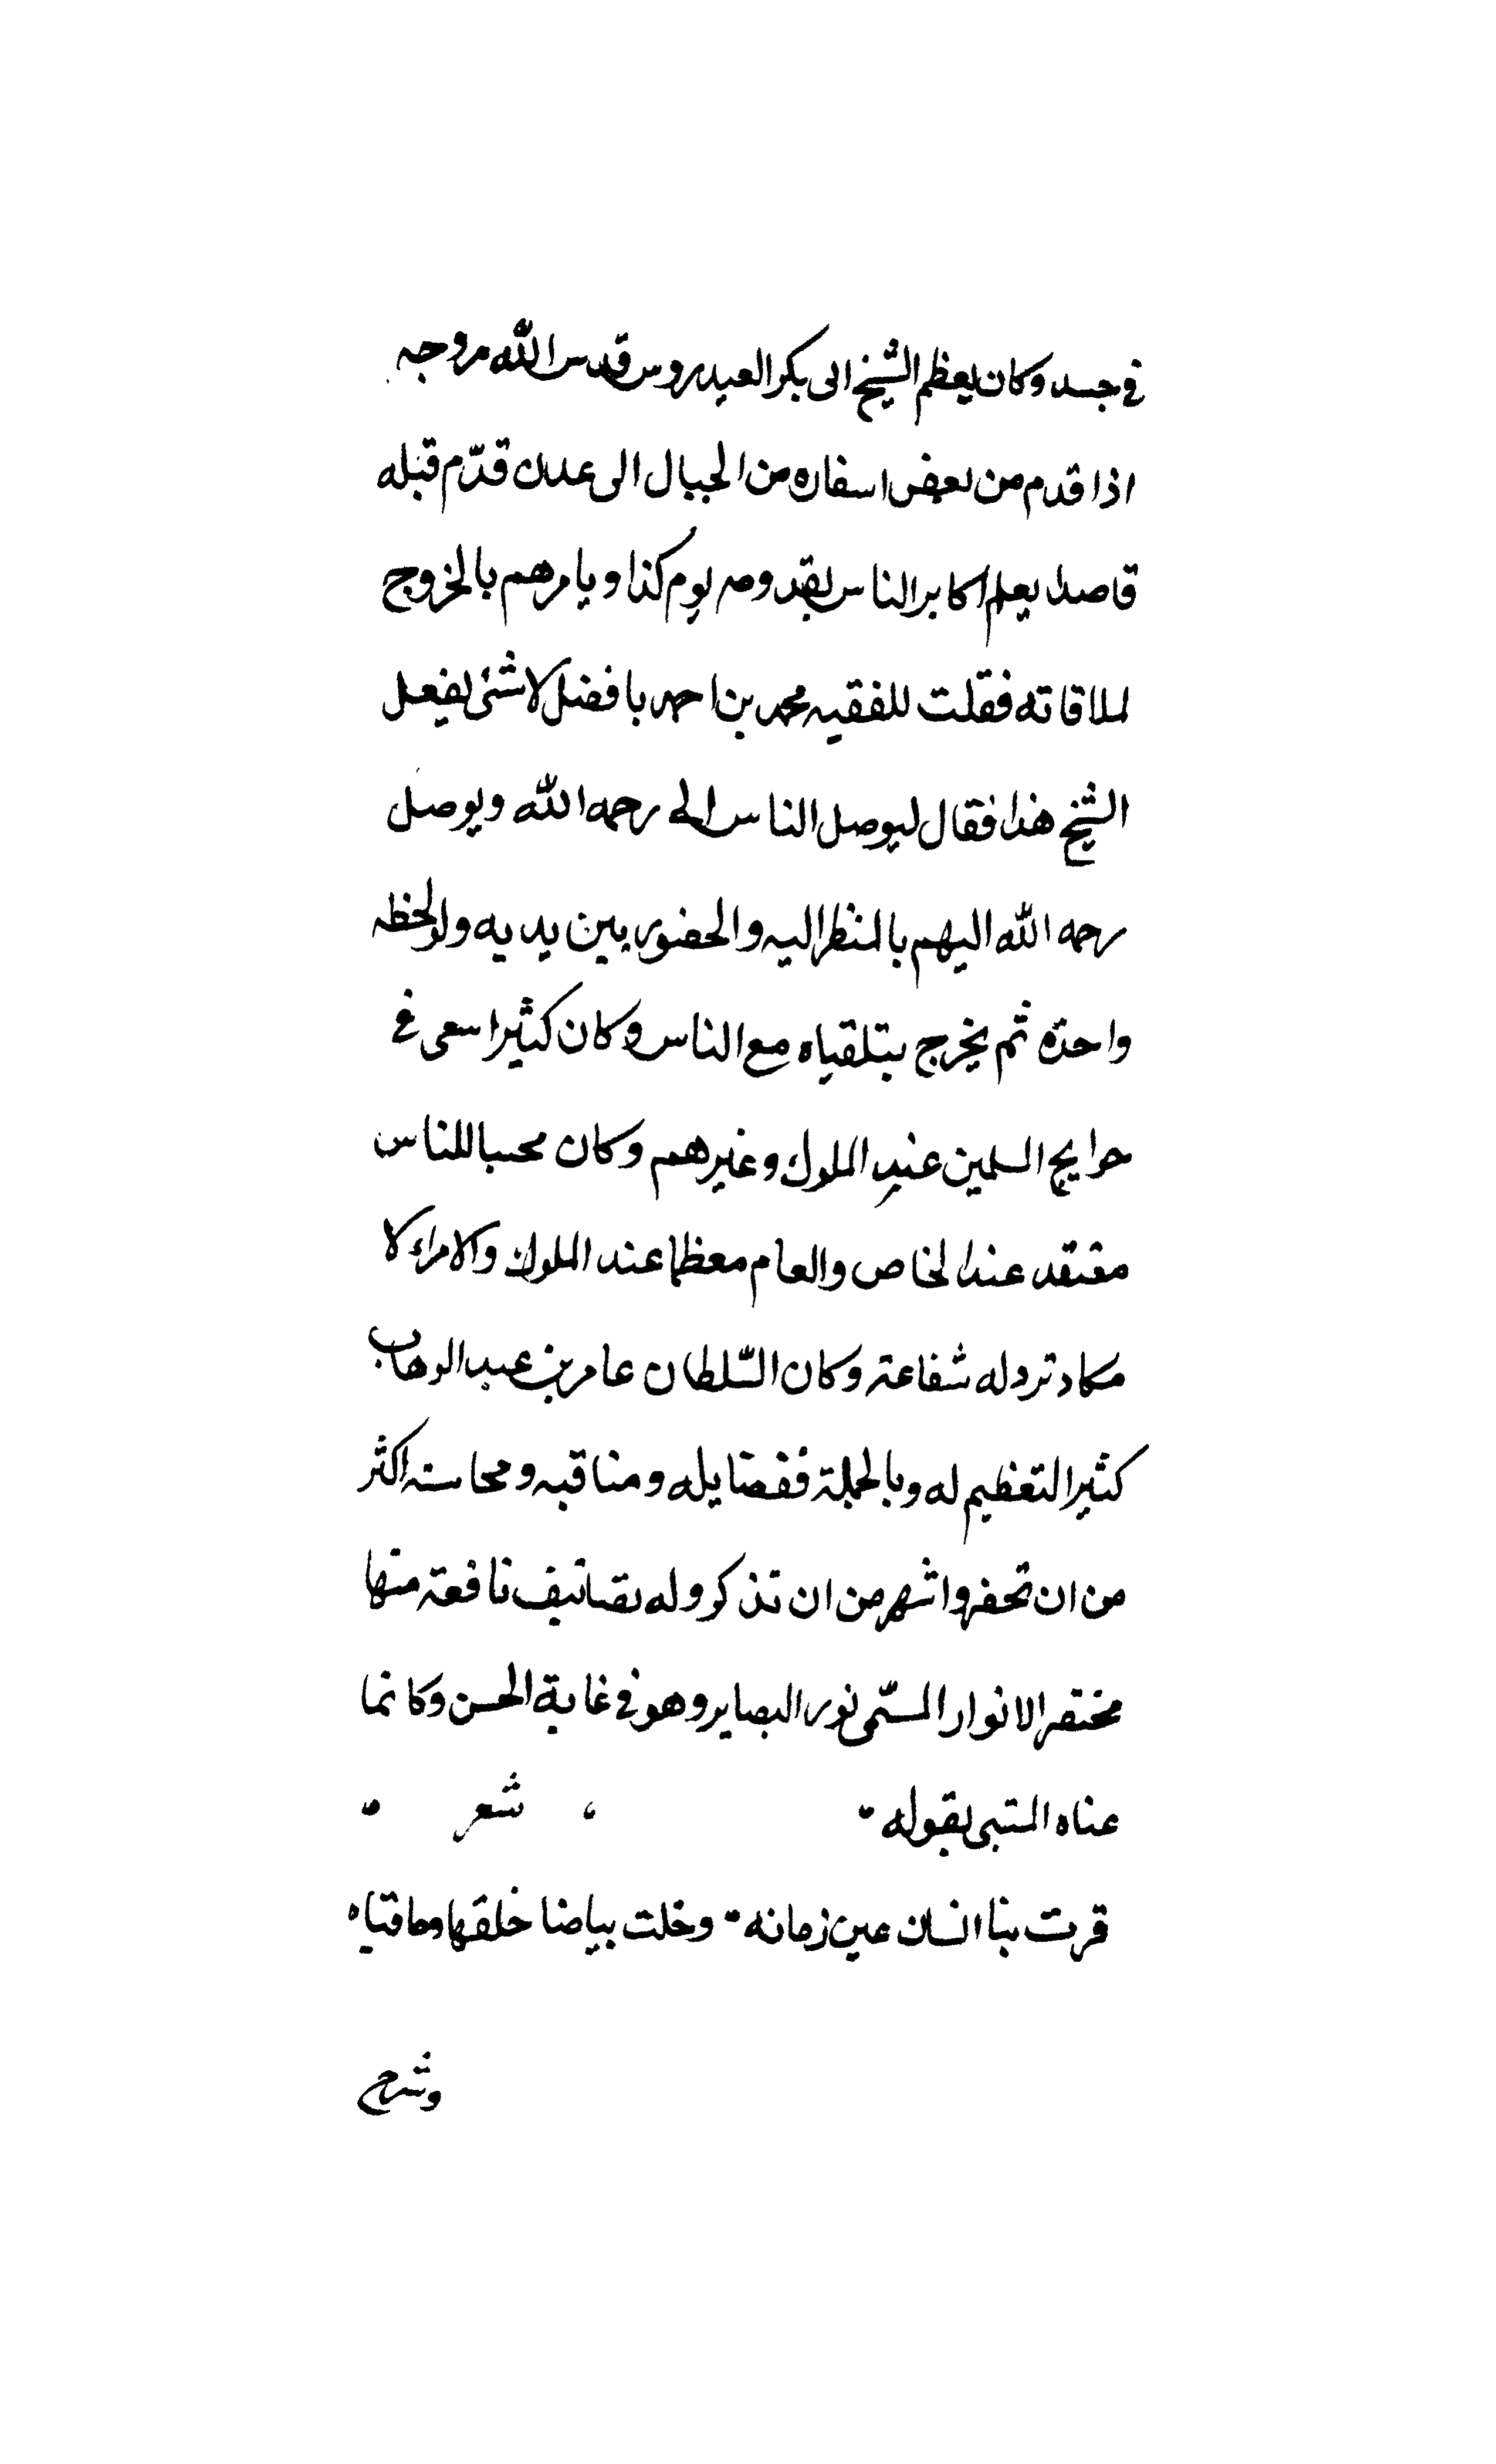 في جسد وكان يعظم الشيخ ابى بكر العيدروس قدس الله روحه
اذا قدم من بعض اسفاره من الجبال الى عدن قدّم قبله
قاصدا يعلم اكابر الناس بقدومه يوم كذا ويامرهم بالخروج
لملاقاته فقلت للفقيه محمد بن احمد بافضل لاشئ يفعل
الشيخ هذا فقال ليوصل الناس الى رحمه الله ويوصل
رحمه الله اليهم بالنظر اليه والحضور بين يديه ولو لحظه
واحدة ثم يخرج يتلقياه مع الناس وكان كثيرا سعى في
حوايج المسلمين عند الملوك وغيرهم وكان محببا للناس
معتقد عند الخاص والعام معظما عند الملوك والامراء لا
مكاد ترد له شفاعة وكان السّلطان عامر بن عبد الوهاب
كثير التعظيم له وبالجملة ففضايله ومناقبه ومحاسنه اكثر
من ان تحصر واشهر من ان تذكر وله تصانيف نافعة منها
مختصر الانوار المسّمى نور البصاير وهو في غاية الحسن وكانما
عناه المتنبى بقوله ، شعر
قرت بنا انسان عين زمانه وخلت بياضا خلفها وماقياه
وشرح